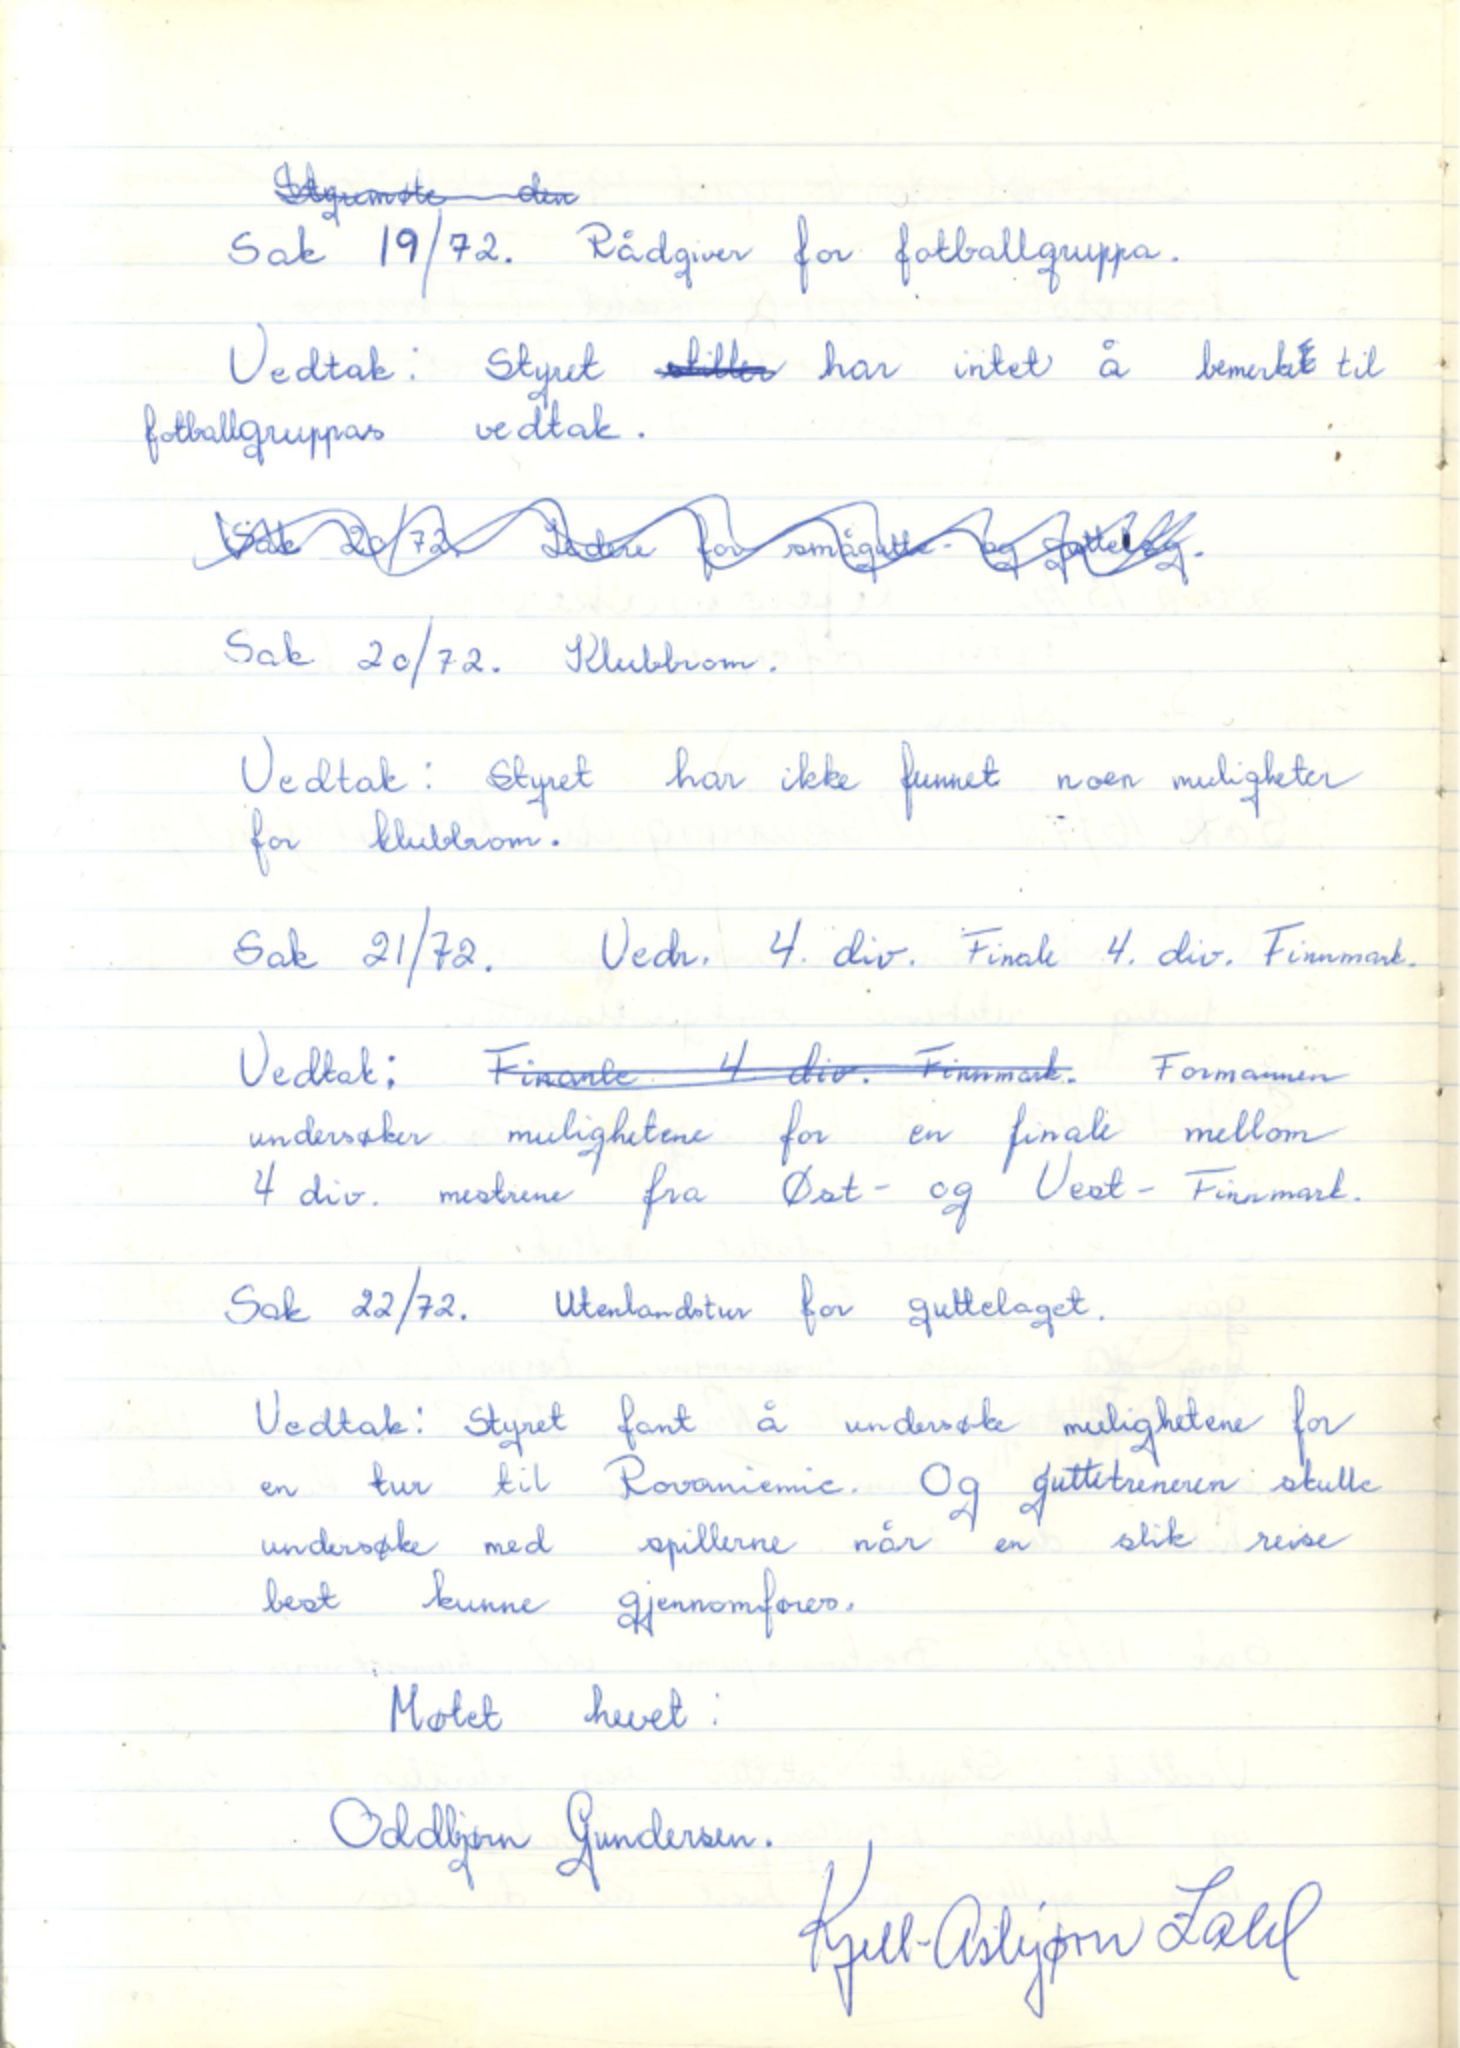 Styremøte den
Sak 19/72. Rådgiver for fotballgruppa.
Vedtak: Styret stiller har intet å bemerke til
fotballgruppas vedtak.
Sak 20/72. Ledere for smågutte- og guttelag.
Sak 20/72. Klubbrom.
Vedtak: Styret har ikke funnet noen muligheter
for klubbrom.
Sak 21/72. Vedr. 4. div. Finale 4. div. Finnmark.
Vedtak: Finanle 4 div. Finnmark. Formannen
undersøker mulighetene for en finale mellom
4 div. mestrene fra Øst- og Vest-Finnmark.
Sak 22/72. Utenlandstur for guttelaget.
Vedtak: Styret fant å undersøke mulighetene for
en tur til Rovaniemie. Og guttetreneren skulle
undersøke med spillerne når en slik reise
best kunne gjennomføres.
Møtet hevet:
Oddbjørn Gundersen.
Kjell-Asbjørn